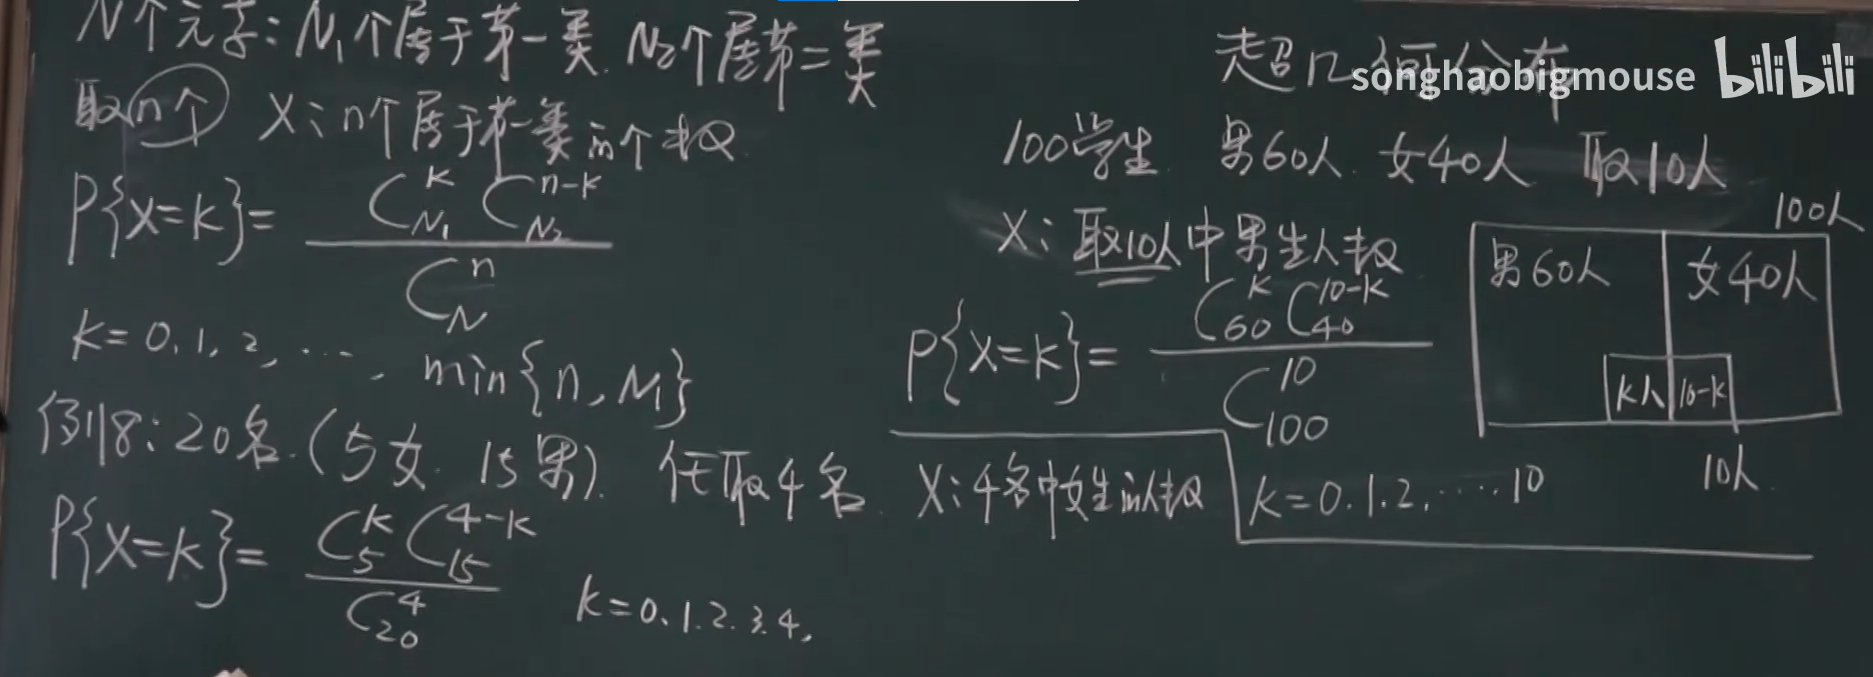 N个元素: N₁个属于第一类. N₂个属第二类
取n个 X: n个属于第一类的个数
P{X=k}= C_{N₁}^{k} C_{N₂}^{n-k} / C_{N}^{n}
k=0,1,2,…, min{n,N₁}
例18: 20名.(5女. 15男). 任取4名. X: 4名中女生的人数
P{X=k}= C_{5}^{k} C_{15}^{4-k} / C_{20}^{4} k=0.1.2.3.4.
超几何分布
songhaobigmouse bilibili
100学生. 男60人. 女40人 取10人
X: 取10人中男生人数
P{X=k}= C_{60}^{k} C_{40}^{10-k} / C_{100}^{10}
k=0.1.2.…..10
100人
男60人 女40人
k人 10-k
10人.